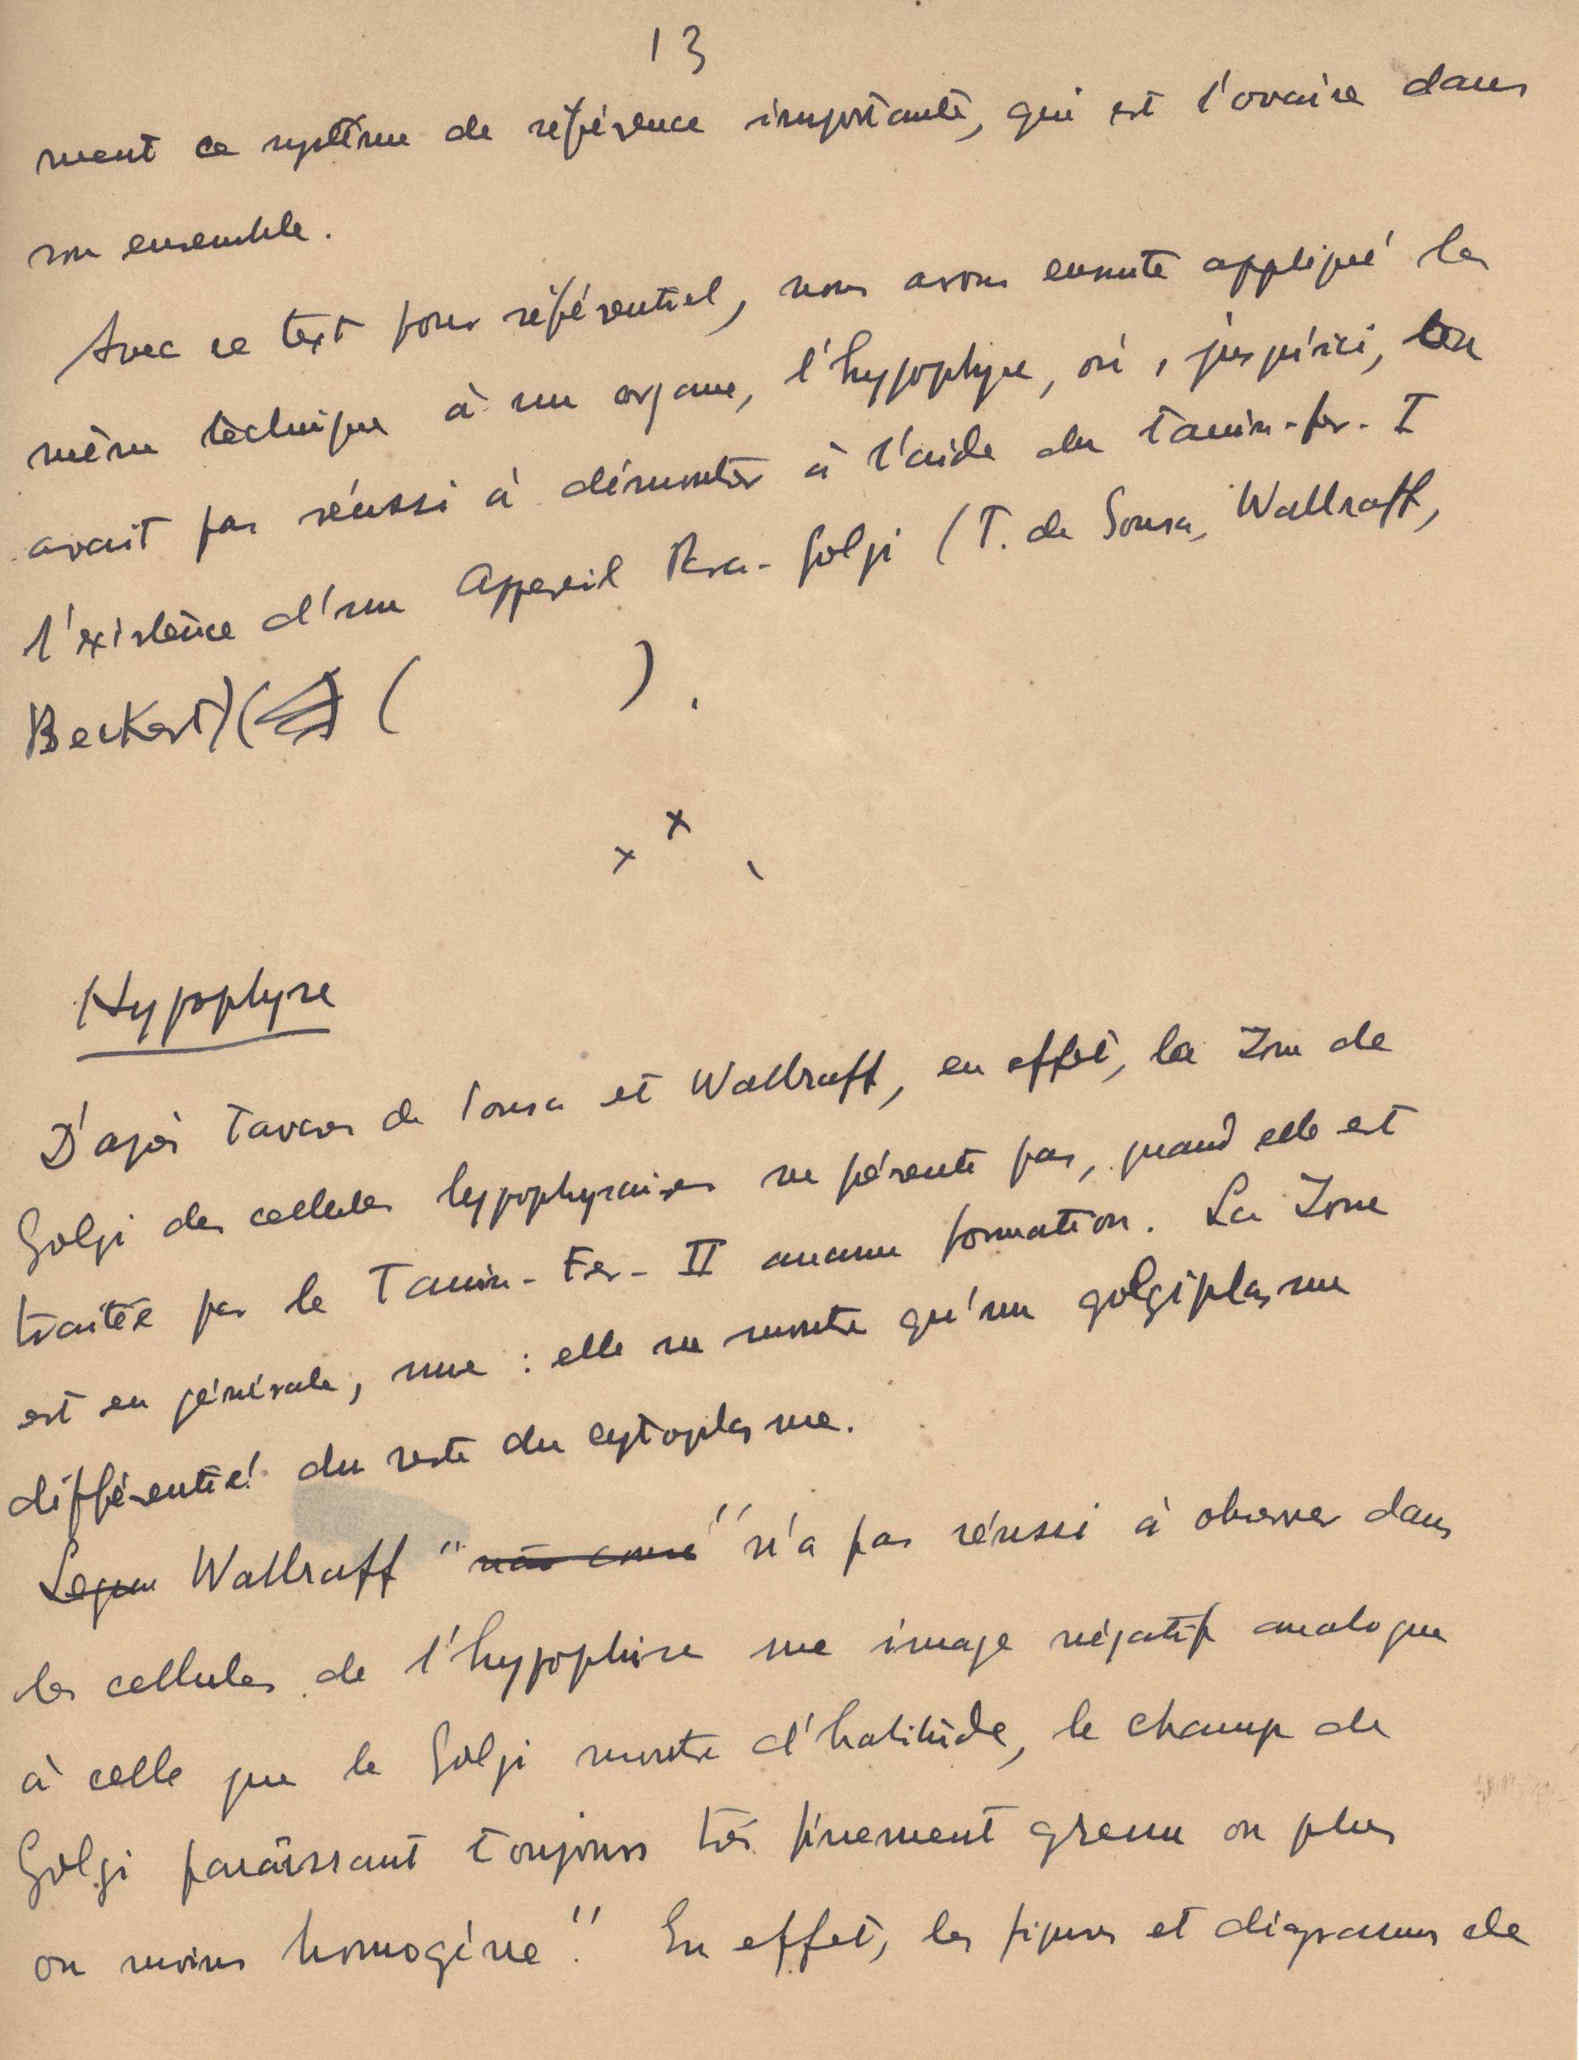 13
ment ce système de référence importante, qui est l'ovaire dans
son ensemble.
Avec ce text pour référentiel, nous avons ensuite appliqué la
même technique à un organe, l'hypophyse, où, jusqu'ici, on
avait pas réussi à démontrer à l'aide du Tanin-fer-I
l'existence d'un Appareil Para-Golgi (T. de Sousa, Wallraff,
Beckert) ( ( ).
x x
Hypophyse
D'après Tavares de Sousa et Wallraff, en effet, la Zone de
Golgi des cellules hypophysaires ne présente pas, quand elle est
traitée par le Tanin-Fer-II aucune formation. La Zone
est en générale, nue : elle ne montre qu'un golgiplasme
différentié du reste du cytoplasme.
Wallraff " " n'a pas réussi à observer dans
les cellules de l'hypophise une image négatif analogue
à celle que le Golgi montre d'habitúde, le champ de
Golgi paraîssant toujours très finement grenu ou plus
ou moins homogéne". En effet, les figures et diagrammes de